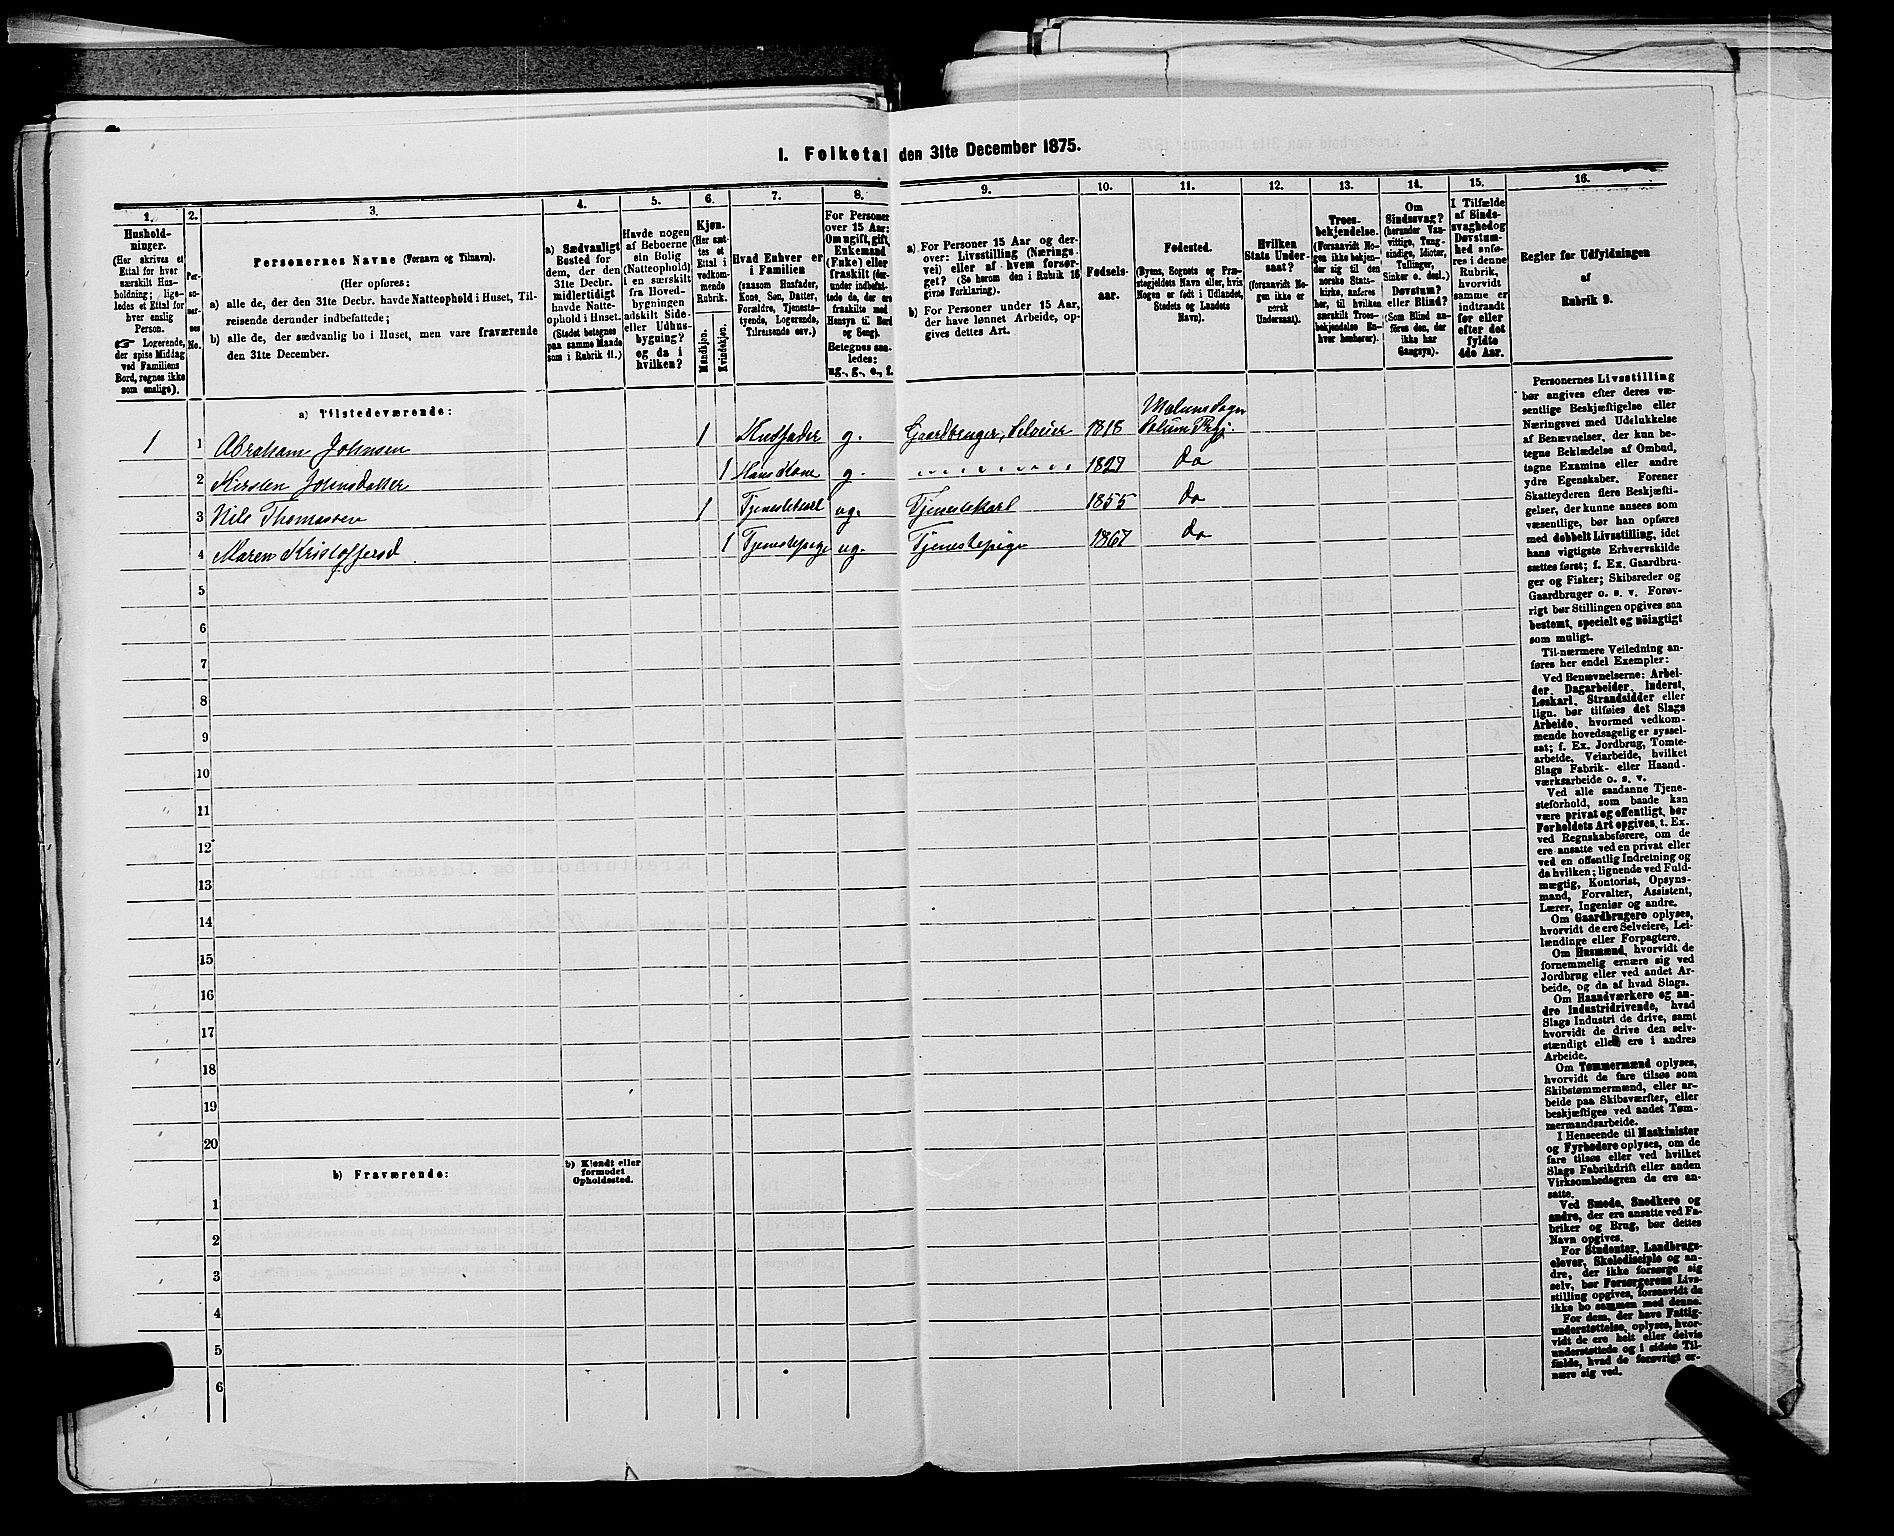 1. Folketal den 31te December 1875.
1.
2.
3.
4.
5.
6.
7.
8.
9.
10.
11.
12.
13.
14.
15.
16.
Hushold-
ninger.
(Her skrives et
Ettal for hver
særskilt Hus-
holdning; lige-
ledes et Ettal for
hver enslig
Person.
☞ Logerende,
der spise Middag
ved Familiens
Bord, regnes ikke
som enslige).
Per-
so-
ner-
nes
No.
Personernes Navne (Fornavn og Tilnavn).
(Her opføres:
a) alle de, der den 31te Decbr. havde Natteophold i Huset, Til-
reisende derunder indbefattede;
b) alle de, der sædvanlig bo i Huset, men vare fraværende
den 31te December.
a) Sædvanligt
Bosted for
dem, der den
31te Decbr.
midlertidigt
havde Natte-
ophold i Huset.
(Stedet betegnes
paa samme Maade
som i Rubrik 11.)
Havde nogen
af Beboerne
sin Bolig
(Natteophold)
i en særskilt
fra Hoved-
bygningen
adskilt Side-
eller Udhus-
bygning?
og da i
hvilken?
Kjøn.
(Her sæt-
tes et
Ettal i
vedkom-
mende
Rubrik.
Mandkjøn.
Kvindekjøn.
Hvad Enhver er
i Familien
(saasom Husfader,
Kone, Søn, Datter,
Forældre, Tjeneste-
tyende, Logerende,
Tilreisende osv.)
For Personer
over 15 Aar:
Om ugift, gift,
Enkemand
(Enke) eller
fraskilt (der-
under indbefat-
tede de, der ere
fraskilte med
Hensyn til Bord
og Seng).
Betegnes saa-
ledes:
ug., g., e., f.
a) For Personer 15 Aar og der-
over: Livsstilling (Nærings-
vei) eller af hvem forsør-
get? (Se herom den i Rubrik 16
givne Forklaring).
b) For Personer under 15 Aar,
der have lønnet Arbeide, op-
gives dettes Art.
Fødsels-
aar.
Fødested.
(Byens, Sognets og Præ-
stegjeldets Navn eller, hvis
Nogen er født i Udlandet,
Stedets og Landets
Navn).
Hvilken
Stats Under-
saat?
(forsaavidt No-
gen ikke er
norsk
Undersaat).
Troes-
bekjendelse.
(Forsaavidt No-
gen ikke bekjen-
der sig til den
norske Stats-
kirke, anføres
her, til hvilken
særskilt Troes-
bekjendelse En-
hver henhører).
Om
Sindssvag?
(herunder Van-
vittige, Tung-
sindige, Idioter,
Tullinger,
Sinker o. desl.)
Døvstum?
eller Blind?
(Som Blind an-
føres den, der
ikke har
Gangsyn).
I Tilfælde
af Sinds-
svaghed og
Døvstum-
hed anfø-
res i denne
Rubrik,
hvorvidt
samme er
indtraadt
før eller
efter det
fyldte
4de Aar.
Regler for Udfyldningen
af
Rubrik 9.
a) Tilstedeværende:
1 1 Abraham Johnsen 1 Husfader g. Gaardbruger, Selveier 1818 Melums Sogn Solum Prgj.
2 Kirsten Johnsdatter 1 Hans Kone g. 1827 Do
3 Nils Thomassen 1 Tjenestekarl ug. Tjenestekarl 1855 Do
4 Maren Kristoffersd 1 Tjenestepige ug. Tjenestepige 1867 Do
5
6
7
8
9
10
11
12
13
14
15
16
17
18
19
20
b) Fraværende:
b) Kjendt eller
formodet
Opholdssted.
1
2
3
4
5
6
Personernes Livsstilling
bør angives efter deres væ-
sentlige Beskjæftigelse eller
Næringsvei med Udelukkelse
af Benævnelser, der kun be-
tegne Beklædelse af Ombud,
tagne Examina eller andre
ydre Egenskaber. Forener
Skatteyderen flere Beskjæfti-
gelser, der kunne ansees som
væsentlige, bør han opføres
med dobbelt Livsstilling, idet
hans vigtigste Erhvervskilde
sættes først; f. Ex. Gaardbru-
ger og Fisker; Skibsreder og
Gaardbruger o. s. v. Forøv-
rigt bør Stillingen opgives saa
bestemt, specielt og nøiagtigt
som muligt.
Til nærmere Veiledning an-
føres her endel Exempler:
Ved Benævnelserne: Arbei-
der, Dagarbeider, Inderst,
Løskarl, Strandsidder eller
lign. bør tilføies det Slags
Arbeide, hvormed vedkom-
mende hovedsagelig er syssel-
sat; f. Ex. Jordbrug, Tomte-
arbeide, Veiarbeide, hvilket
Slags Fabrik- eller Haand-
værksarbeide o. s. v.
Ved alle saadanne Tjene-
steforhold, som baade kan
være privat og offentligt, bør
Forholdets Art opgives, t. Ex.
ved Regnskabsførere, om de
ere ansatte ved en privat eller
ved en offentlig Indretning og
da hvilken; lignende ved Fuld-
mægtig, Kontorist, Opsyns-
mand, Forvalter, Assistent,
Lærer, Ingeniør og andre.
Om Gaardbrugere oplyses,
hvorvidt de ere Selveiere, Lei-
lændinge eller Forpagtere.
Om Husmænd, hvorvidt de
fornemmelig ernære sig ved
Jordbrug eller ved andet Ar-
beide, og da af hvad Slags.
Om Haandværkere og an-
dre Industridrivende, hvad
Slags Industri de drive, samt
hvorvidt de drive den selv-
stændigt eller ere i andres
Arbeide.
Om Tømmermænd oplyses,
hvorvidt de fare tilsøs som
Skibstømmermænd, eller ar-
beide paa Skibsværfter, eller
beskjæftiges ved andet Tøm-
mermandsarbeide.
I Henseende til Maskinister
og Fyrbødere oplyses, om de
fare tilsøs eller ved hvilket
Slags Fabrikdrift eller anden
Virksomhedsgren de ere an-
satte.
Ved Smede, Snedkere og
andre, der ere ansatte ved Fa-
briker og Brug, bør dettes
Navn opgives.
For Studenter, Landbrugs-
elever, Skoledisciple og an-
dre, der ikke forsørge sig
selv, bør Forsørgerens Livs-
stilling opgives, forsaavidt de
ikke bo sammen med denne.
For dem, der have Fattig-
understøttelse, oplyses, hvor-
vidt de ere helt eller delvis
understøttede og i sidste Til-
fælde, hvad de forøvrigt er-
nære sig ved.